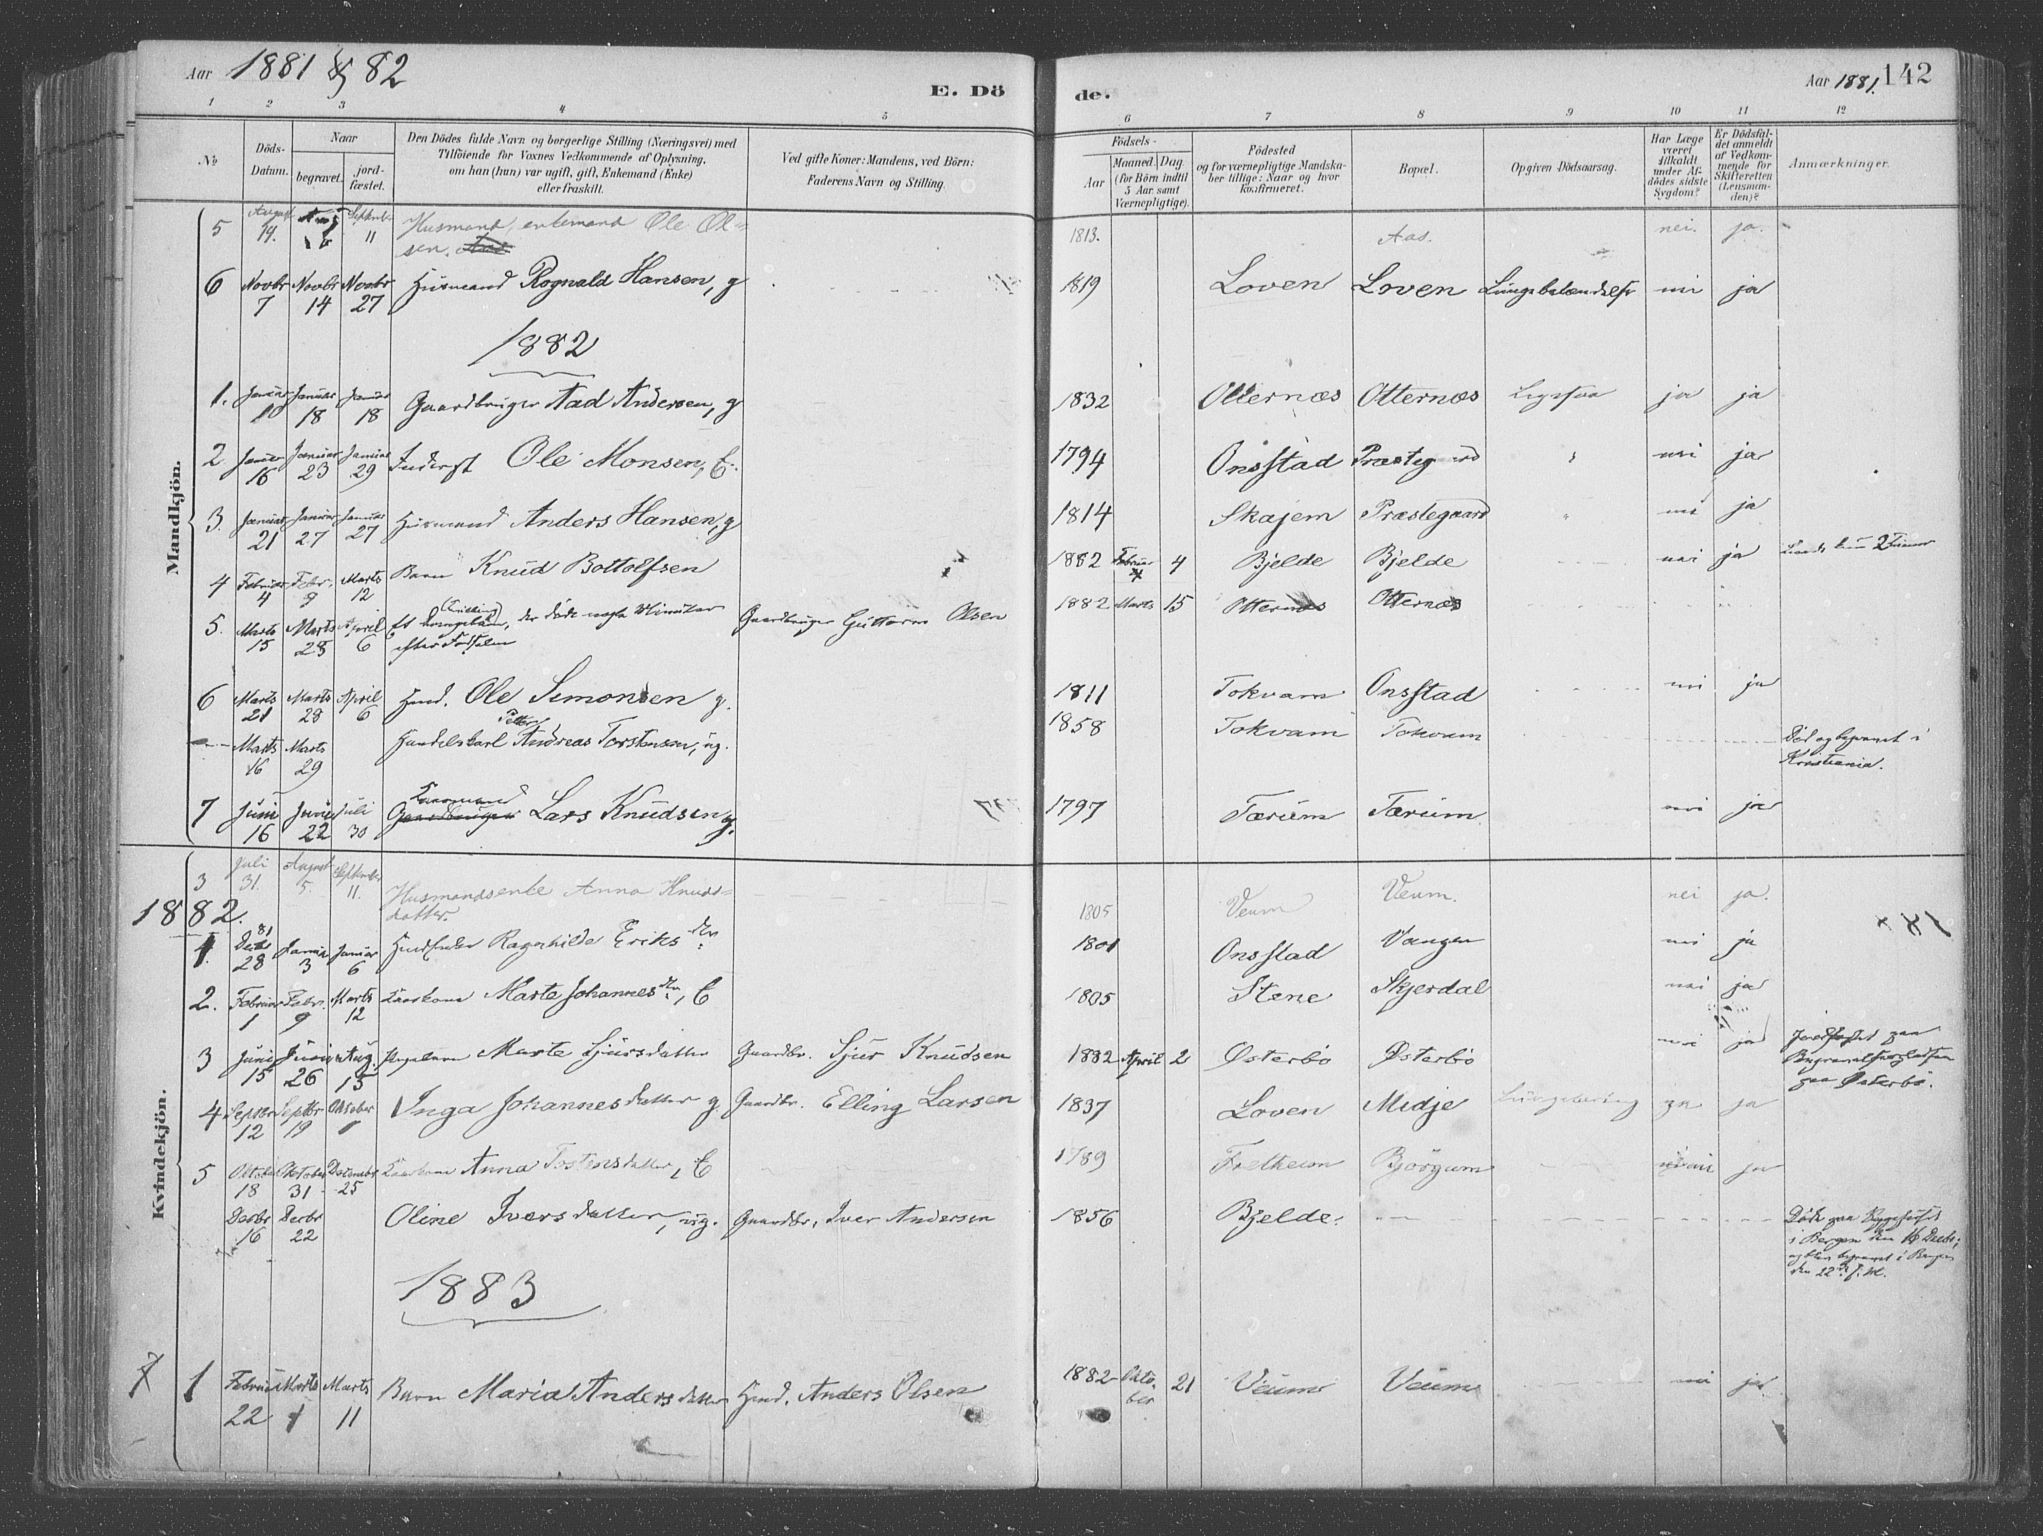 Aar 1881 & 82
E. Dö
de.
Aar 1881. 142
1 2 3 4 5 6 7 8 9 10 11 12
No
Döds-
Datum.
Naar
begravet.
jord-
fæstet.
Den Dödes fulde Navn og borgerlige Stilling (Næringsvei) med
Tilföiende for Voxnes Vedkommende af Oplysning,
om han (hun) var ugift, gift, Enkemand (Enke)
eller fraskilt.
Ved gifte Koner: Mandens, ved Börn:
Faderens Navn og Stilling.
Födsels-
Aar
Maaned. Dag.
(for Börn indtil
5 Aar samt
Værnepligtige).
Födested
og for værnepligtige Mandska-
ber tillige: Naar og hvor
konfirmeret.
Bopæl.
Opgiven Dödsaarsag.
Har Læge
været
tilkaldt
under Af-
dödes sidste
Sygdom?
Er Dödsfal-
det anmeldt
af Vedkom-
mende for
Skifteretten
(Lensman-
den)?
Anmærkninger.
Mandkjön.
5 August 14. September 11 Husmand, enkemand Ole Ol-
sen. 1813. Aas. nei. ja.
6 Novbr 7 Novbr 14 Novbr 27 Husmand Rognald Hansen, g 1819 Loven Loven Lungebetændelse nei ja
1882
1. Januar 10 Januar 18 Januar 18 Gaardbruger Aad Andersen, g 1832 Otternæs Otternæs ja ja
2 Januar 16 Januar 23 Januar 29 Inderst Ole Monsen, E. 1794 Onstad Præstegaard nei ja
3. Januar 21 Januar 27 Januar 27 Husmand Anders Hansen, g 1814 Skajem Præstegaard nei ja
4 Februar 4 Febr. 9 Marts 12 Barn Knud Bottolfsen 1882 Februar 4 Bjelde Bjelde nei ja 2 Timer
5. Marts 15 Marts 28 April 6 Et der döde nogle Minuter
efter Födselen Gaardbruger Guttorm Olsen 1882 Marts 15 Otternæs Otternæs
6 Marts 21 Marts 28 April 6 Husmd. Ole Simonsen g. 1811 Tokvam Onstad nei ja
Marts 16 Marts 29 Handelskarl Petter Andreas Torstensen, ug. 1858 Tokvam Tokvam Död og begravet i
Kristiania.
7 Juni 16 Juni 22 Juli 30 Kaarmand Gaardbruger Lars Knudsen g. 1797 Tærum Tærum nei ja
Kvindekjön.
3 Juli 31. August 5. September 11. Husmandsenke Anna Knuds-
datter. 1805 Veum Veum. nei ja.
1882.
1. 81 Decbr 28 Januar 3 Januar 6 Ragnhilde Eriksdtr 1801 Onstad Vangen nei ja
2. Februar 1 Febr. 9 Marts 12 Kaarkone Marte Johannesdtr, E 1805 Stene Skjerdal nei ja
3 Juni 15 Juni 26 Aug. 15 Pigebarn Marte Sjursdatter Gaardbr. Sjur Knudsen 1882 April 2 Østerbö Østerbö nei ja Jordfæstet paa
Begravelsespladsen
paa Østerbö.
4 Septbr 12 Septbr 19 Oktober 1 Inga Johannesdatter g Gaardbr. Elling Larsen 1837 Loven Midje Lungetæring ja ja
5 Oktober 18 Oktober 31 Decembr 25 Kaarkone Anna Tostensdatter, E 1789 Fretheim Björgum nei ja
Decbr 16 Decbr 22 Oline Iversdatter, ug. Gaardbr. Iver Andersen 1856 Bjelde. Döde paa Sygehuset
i Bergen den 16 Decbr,
og blev begravet i Bergen
den 22de f. M.
1883
1 Februar 22 Marts 1 Marts 11 Barn Maria Andersdatter Husmd. Anders Olsen 1882 Okto-
ber 21 Veum Veum nei ja